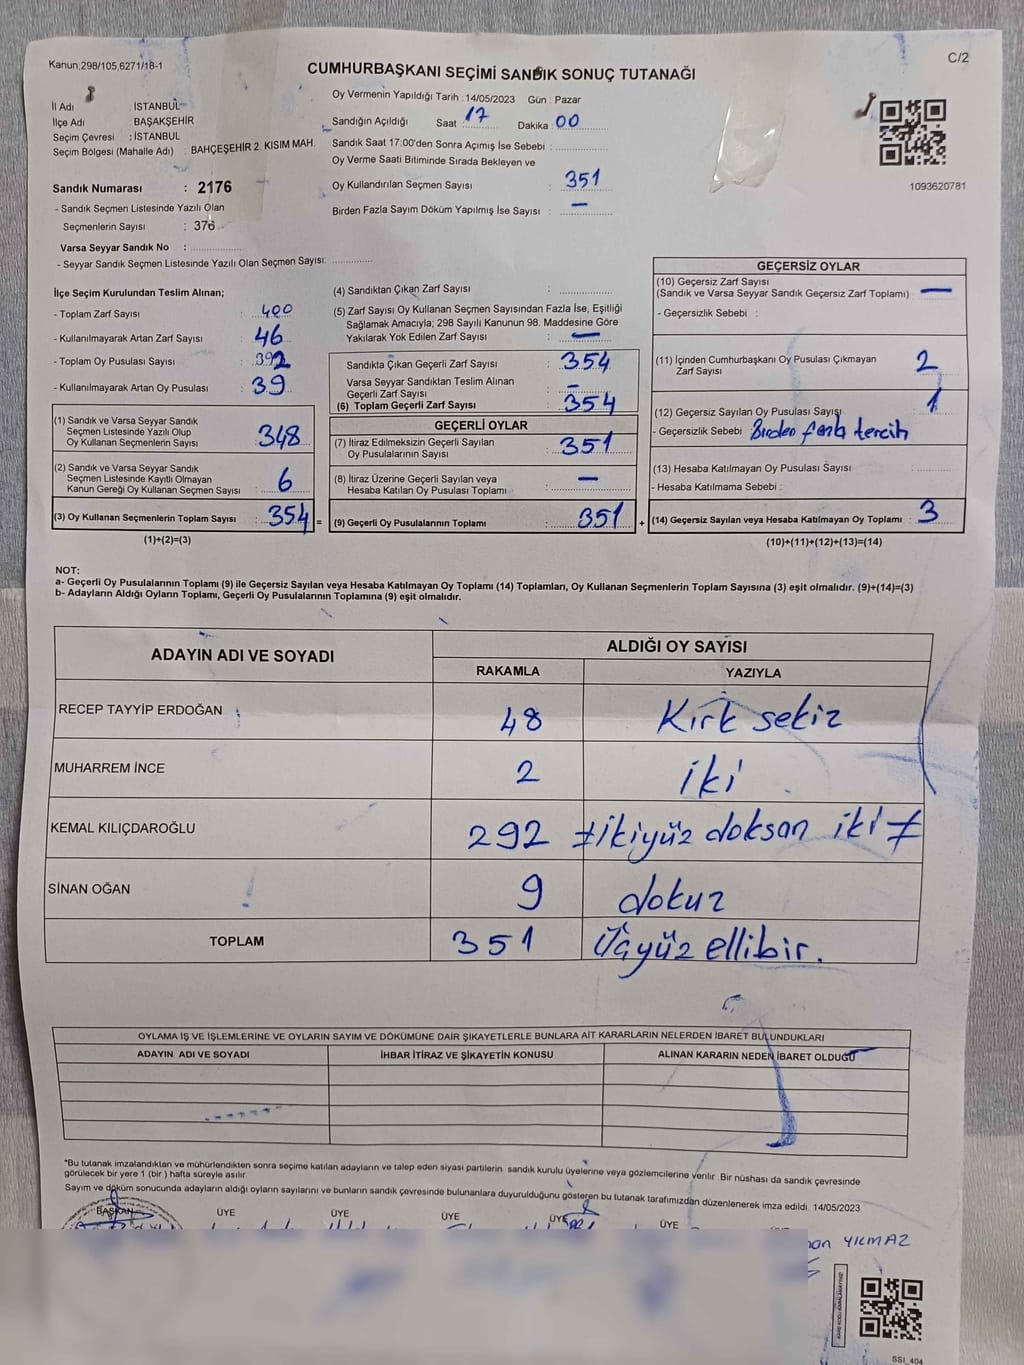 Kanun;298/105,6271/18-1
C/2
CUMHURBAŞKANI SEÇİMİ SANDIK SONUÇ TUTANAĞI
İl Adı : İSTANBUL
İlçe Adı BAŞAKŞEHİR
Seçim Çevresi : İSTANBUL
Seçim Bölgesi (Mahalle Adı) : BAHÇEŞEHİR 2. KISIM MAH.
Sandık Numarası : 2176
- Sandık Seçmen Listesinde Yazılı Olan
Seçmenlerin Sayısı : 376
Varsa Seyyar Sandık No :
- Seyyar Sandık Seçmen Listesinde Yazılı Olan Seçmen Sayısı:
Oy Vermenin Yapıldığı Tarih : 14/05/2023 Gün : Pazar
Sandığın Açıldığı Saat 17 Dakika 00
Sandık Saat 17:00'den Sonra Açımış İse Sebebi :
Oy Verme Saati Bitiminde Sırada Bekleyen ve
Oy Kullandırılan Seçmen Sayısı : 351
Birden Fazla Sayım Döküm Yapılmış İse Sayısı : —
1093620781
İlçe Seçim Kurulundan Teslim Alınan;
- Toplam Zarf Sayısı : 400
- Kullanılmayarak Artan Zarf Sayısı : 46
- Toplam Oy Pusulası Sayısı : 392
- Kullanılmayarak Artan Oy Pusulası : 39
(1) Sandık ve Varsa Seyyar Sandık
Seçmen Listesinde Yazılı Olup
Oy Kullanan Seçmenlerin Sayısı : 348
(2) Sandık ve Varsa Seyyar Sandık
Seçmen Listesinde Kayıtlı Olmayan
Kanun Gereği Oy Kullanan Seçmen Sayısı : 6
(3) Oy Kullanan Seçmenlerin Toplam Sayısı : 354 =
(1)+(2)=(3)
(4) Sandıktan Çıkan Zarf Sayısı :
(5) Zarf Sayısı Oy Kullanan Seçmen Sayısından Fazla İse, Eşitliği
Sağlamak Amacıyla; 298 Sayılı Kanunun 98. Maddesine Göre
Yakılarak Yok Edilen Zarf Sayısı : —
Sandıkta Çıkan Geçerli Zarf Sayısı : 354
Varsa Seyyar Sandıktan Teslim Alınan
Geçerli Zarf Sayısı : –
(6) Toplam Geçerli Zarf Sayısı : 354
GEÇERLİ OYLAR
(7) İtiraz Edilmeksizin Geçerli Sayılan
Oy Pusulalarının Sayısı : 351
(8) İtiraz Üzerine Geçerli Sayılan veya
Hesaba Katılan Oy Pusulası Toplamı : —
(9) Geçerli Oy Pusulalarının Toplamı : 351 +
GEÇERSİZ OYLAR
(10) Geçersiz Zarf Sayısı
(Sandık ve Varsa Seyyar Sandık Geçersiz Zarf Toplamı) : —
- Geçersizlik Sebebi :
(11) İçinden Cumhurbaşkanı Oy Pusulası Çıkmayan
Zarf Sayısı : 2
(12) Geçersiz Sayılan Oy Pusulası Sayısı : 1
- Geçersizlik Sebebi : Birden fazla tercih
(13) Hesaba Katılmayan Oy Pusulası Sayısı :
- Hesaba Katılmama Sebebi :
(14) Geçersiz Sayılan veya Hesaba Katılmayan Oy Toplamı : 3
(10)+(11)+(12)+(13)=(14)
NOT:
a- Geçerli Oy Pusulalarının Toplamı (9) ile Geçersiz Sayılan veya Hesaba Katılmayan Oy Toplamı (14) Toplamları, Oy Kullanan Seçmenlerin Toplam Sayısına (3) eşit olmalıdır. (9)+(14)=(3)
b- Adayların Aldığı Oyların Toplamı, Geçerli Oy Pusulalarının Toplamına (9) eşit olmalıdır.
ADAYIN ADI VE SOYADI
ALDIĞI OY SAYISI
RAKAMLA YAZIYLA
RECEP TAYYİP ERDOĞAN 48 Kırk sekiz
MUHARREM İNCE 2 iki
KEMAL KILIÇDAROĞLU 292 ≠ikiyüz doksan iki≠
SİNAN OĞAN 9 dokuz
TOPLAM 351 Üçyüz ellibir.
OYLAMA İŞ VE İŞLEMLERİNE VE OYLARIN SAYIM VE DÖKÜMÜNE DAİR ŞİKAYETLERLE BUNLARA AİT KARARLARIN NELERDEN İBARET BULUNDUKLARI
ADAYIN ADI VE SOYADI İHBAR İTİRAZ VE ŞİKAYETİN KONUSU ALINAN KARARIN NEDEN İBARET OLDUĞU
*Bu tutanak imzalandıktan ve mühürlendikten sonra seçime katılan adayların ve talep eden siyasi partilerin sandık kurulu üyelerine veya gözlemcilerine verilir. Bir nüshası da sandık çevresinde
görülecek bir yere 1 (bir ) hafta süreyle asılır.
Sayım ve döküm sonucunda adayların aldığı oyların sayılarını ve bunların sandık çevresinde bulunanlara duyurulduğunu gösteren bu tutanak tarafımızdan düzenlenerek imza edildi. 14/05/2023
BAŞKAN ÜYE ÜYE ÜYE ÜYE ÜYE
YILMAZ
SSI_404